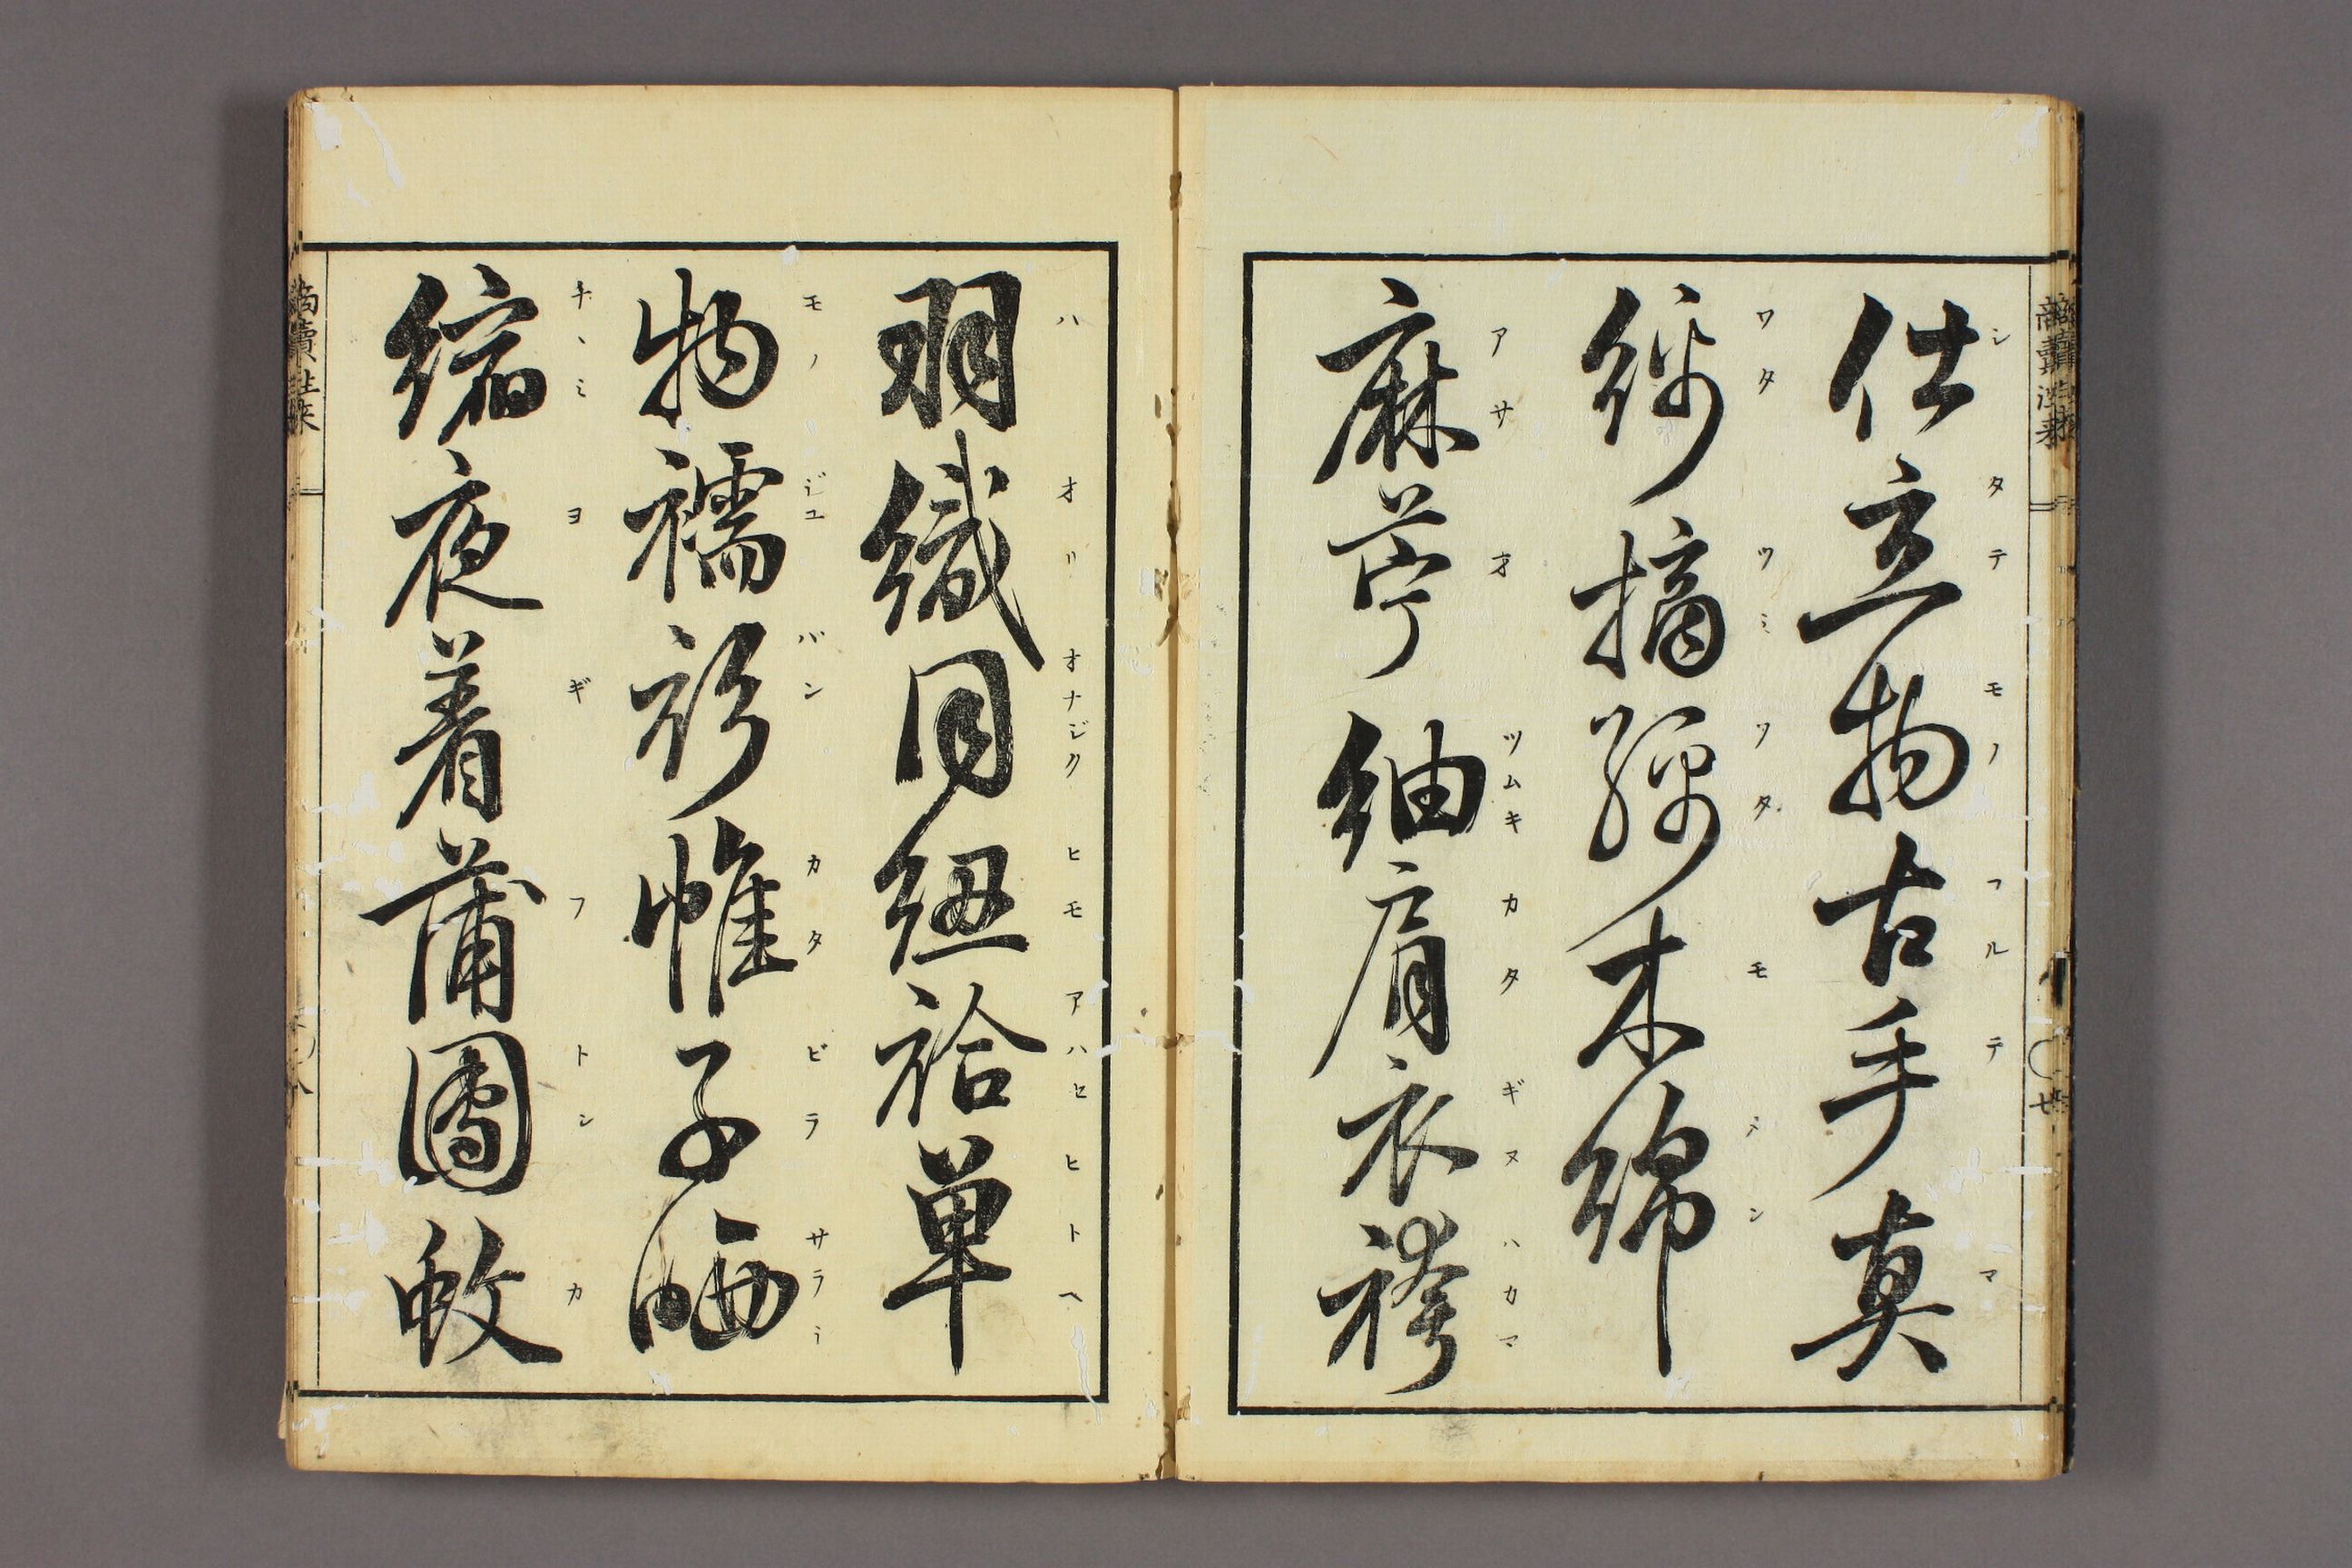 仕立物古手真
シタテモノフルテマ
綿摘綿木綿
ワタツミワタモメン
麻苧紬肩衣袴
アサオツムキカタギヌハカマ
羽織同紐袷単
ハオリオナジクヒモアハセヒトヘ
物襦袢帷子晒
モノジユバンカタビラサラシ
縮夜着蒲團蚊
チヽミヨギフトンカ